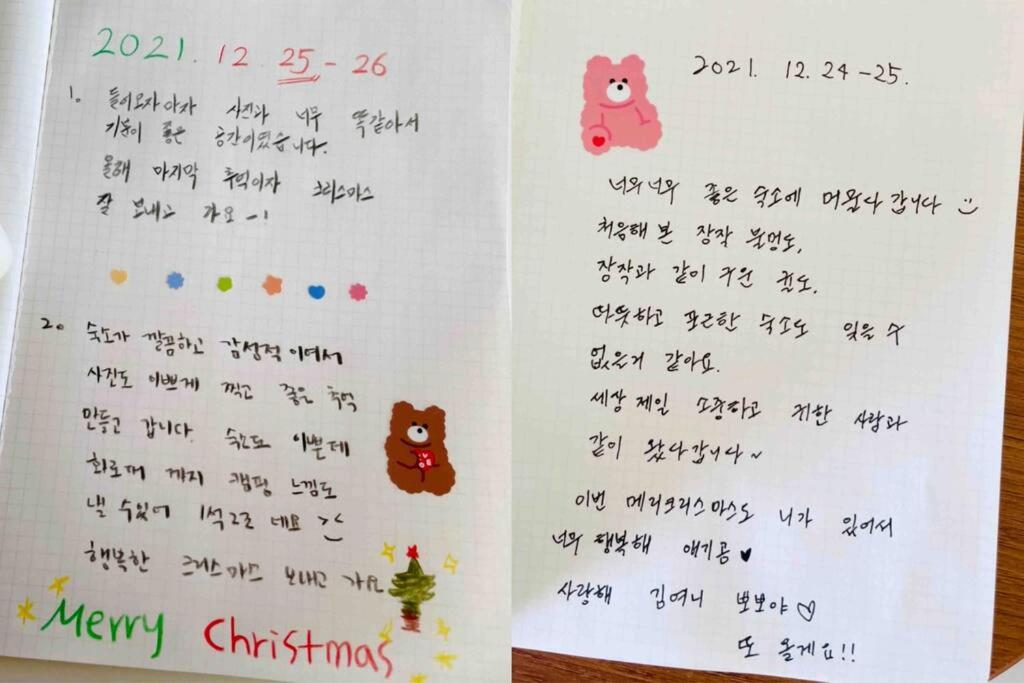 2021. 12. 25 - 26
1. 들어오자마자 사진과 너무 똑같아서
기분이 좋은 공간이였습니다.
올해 마지막 추억이자 크리스마스
잘 보내고 가요 ~!
2. 숙소가 깔끔하고 감성적이여서
사진도 이쁘게 찍고 좋은 추억
만들고 갑니다. 숙소도 이쁜데
화로대 까지 캠핑 느낌도
낼 수있어 1석2조 네요 ><
행복한 크리스마스 보내고 가요
Merry Christmas
2021. 12. 24 - 25.
너무너무 좋은 숙소에 머물다 갑니다 :)
처음해 본 장작 불멍도,
장작과 같이 구운 귤도,
따뜻하고 포근한 숙소도 잊을 수
없을거 같아요.
세상 제일 소중하고 귀한 사람과
같이 왔다갑니다~
이번 메리크리스마스도 니가 있어서
너무 행복해 애기곰 ♥
사랑해 김여니 뽀뽀야 ♡
또 올게요!!